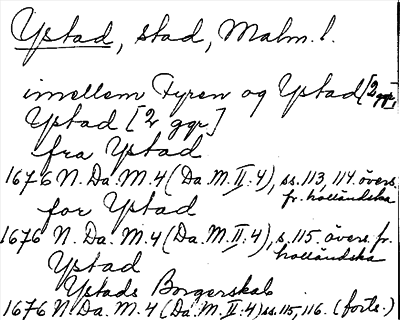 Ystad, stad, Malm. l.
imellem Fyren og Ystad [2 ggr]
Ystad [2 ggr]
fra Ystad
1676 N. Da. M. 4 (Da. M. II: 4), ss. 113, 114 övers. fr. holländska
for Ystad
1676 N. Da. M. 4 (Da. M. II: 4), s. 115. övers. fr. holländska
Ystad
Ystads Borgerskab
1676 N. Da. M. 4 (Da. M. II: 4) ss. 115, 116. (forts.)